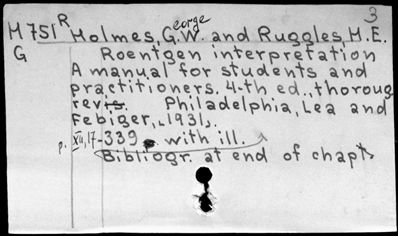 3
M751 R Holmes, George W. and Ruggles, H.E.
G Roentgen interpretation
A manual for students and
practitioners. 4-th ed., thoroug
revis. Philadelphia, Lea and
Febiger, [1931].
p. XII, 17-339 with ill.
Bibliogr. at end of chapt.